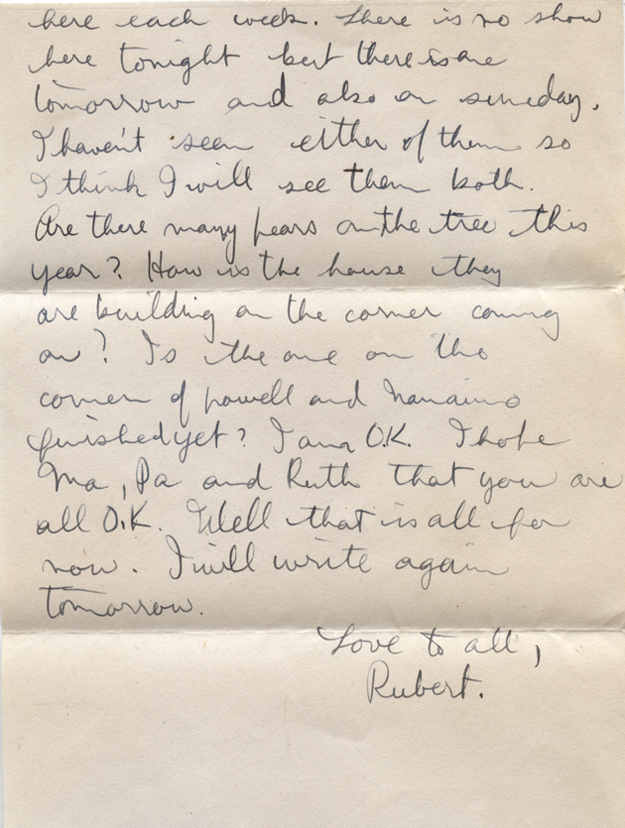 here each week. There is no show
here tonight but there is one
tomorrow and also on sunday.
I haven't seen either of them so
I think I will see them both.
Are there many pears on the tree this
year? How is the house they
are building on the corner coming
on? Is the one on the
corner of powell and nanaimo
finished yet? I am O.K. I hope
Ma, Pa and Ruth that you are
all O.K. Well that is all for
now. I will write again
tomorrow.
Love to all,
Rubert.